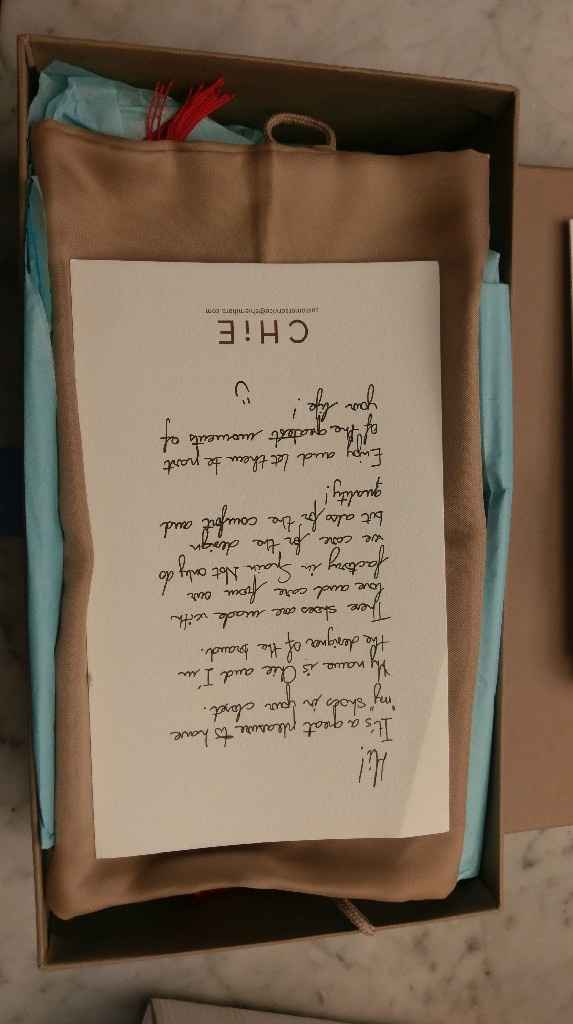 Hi!
It's a great pleasure to have
"my" shoes in your closet.
My name is Chie and I'm
the designer of the brand.
These shoes are made with
love and care from our
factory in Spain. Not only do
we care for the design
but also for the comfort and
quality!
Enjoy and let them be part
of the greatest moments of
your life!
CHiE
customerservice@chiemihara.com